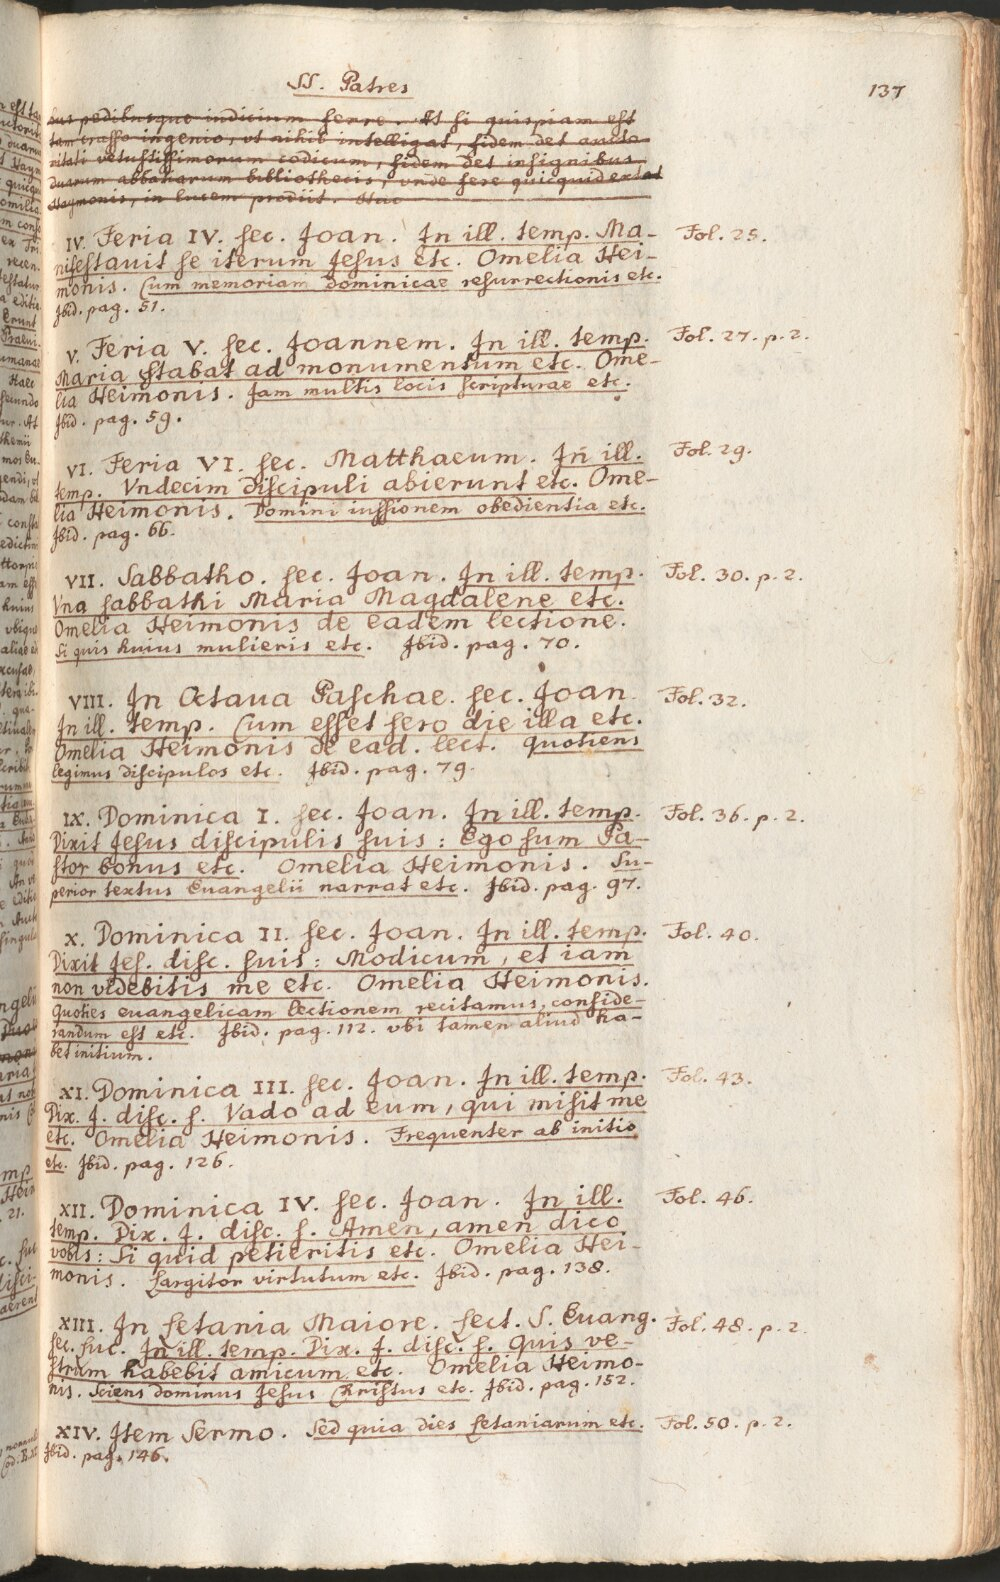 SS. Patres
137
bus pedibusque iudicium ferre. At si quispiam est
tam crasso ingenio, ut nihil intelligat, fidem det aucto
ritati vetustissimorum codicum, fidem det insignibus
duarum abbatiarum bibliothecis, unde fere quicquid extat
Haymonis, in lucem prodiit. Hac
IV. Feria IV. sec. Joan. In ill. temp. Ma- Fol. 25.
nifestavit se iterum Jesus etc. Omelia Hei-
monis. Cum memoriam Dominicae resurrectionis etc.
Jbid. pag. 51.
V. Feria V. sec. Joannem. In ill. temp. Fol. 27. p. 2.
Maria stabat ad monumentum etc. Ome-
lia Heimonis. Jam multis locis scripturae etc.
Jbid. pag. 59.
VI. Feria VI. sec. Matthaeum. In ill. Fol. 29.
temp. Vndecim discipuli abierunt etc. Ome-
lia Heimonis. Domini iussionem obedientia etc.
Jbid. pag. 66.
VII. Sabbatho. sec. Joan. In ill. temp. Fol. 30. p. 2.
Vna sabbathi Maria Magdalene etc.
Omelia Heimonis de eadem lectione.
Si quis huius mulieris etc. Jbid. pag. 70.
VIII. In Octaua Paschae. sec. Joan. Fol. 32.
In ill. temp. Cum esset sero die illa etc.
Omelia Heimonis de ead. lect. Quotiens
legimus discipulos etc. Jbid. pag. 79.
IX. Dominica I. sec. Joan. In ill. temp. Fol. 36. p. 2.
Dixit Jesus discipulis suis: Ego sum Pa-
stor bonus etc. Omelia Heimonis. Su-
perior textus Euangelii narrat etc. Jbid. pag. 97.
X. Dominica II. sec. Joan. In ill. temp. Fol. 40.
Dixit Jes. disc. suis: Modicum, et iam
non videbitis me etc. Omelia Heimonis.
Quoties euangelicam lectionem recitamus, conside-
randum est etc. Jbid. pag. 112. vbi tamen aliud ha-
bet initium.
XI. Dominica III. sec. Joan. In ill. temp. Fol. 43.
Dix. J. disc. s. Vado ad eum, qui misit me
etc. Omelia Heimonis. Frequenter ab initio
etc. Jbid. pag. 126.
XII. Dominica IV. sec. Joan. In ill. Fol. 46.
temp. Dix. J. disc. s. Amen, amen dico
vobis: Si quid petieritis etc. Omelia Hei-
monis. Largitor virtutum etc. Jbid. pag. 138.
XIII. In Letania Maiore. Lect. S. Euang. Fol. 48. p. 2.
sec. Luc. In ill. temp. Dix. J. disc. s. Quis ve-
strum habebit amicum etc. Omelia Heimo-
nis. Sciens dominus Jesus Christus etc. Jbid. pag. 152.
XIV. Item Sermo. Sed quia dies Letaniarum etc. Fol. 50. p. 2.
Jbid. pag. 146.